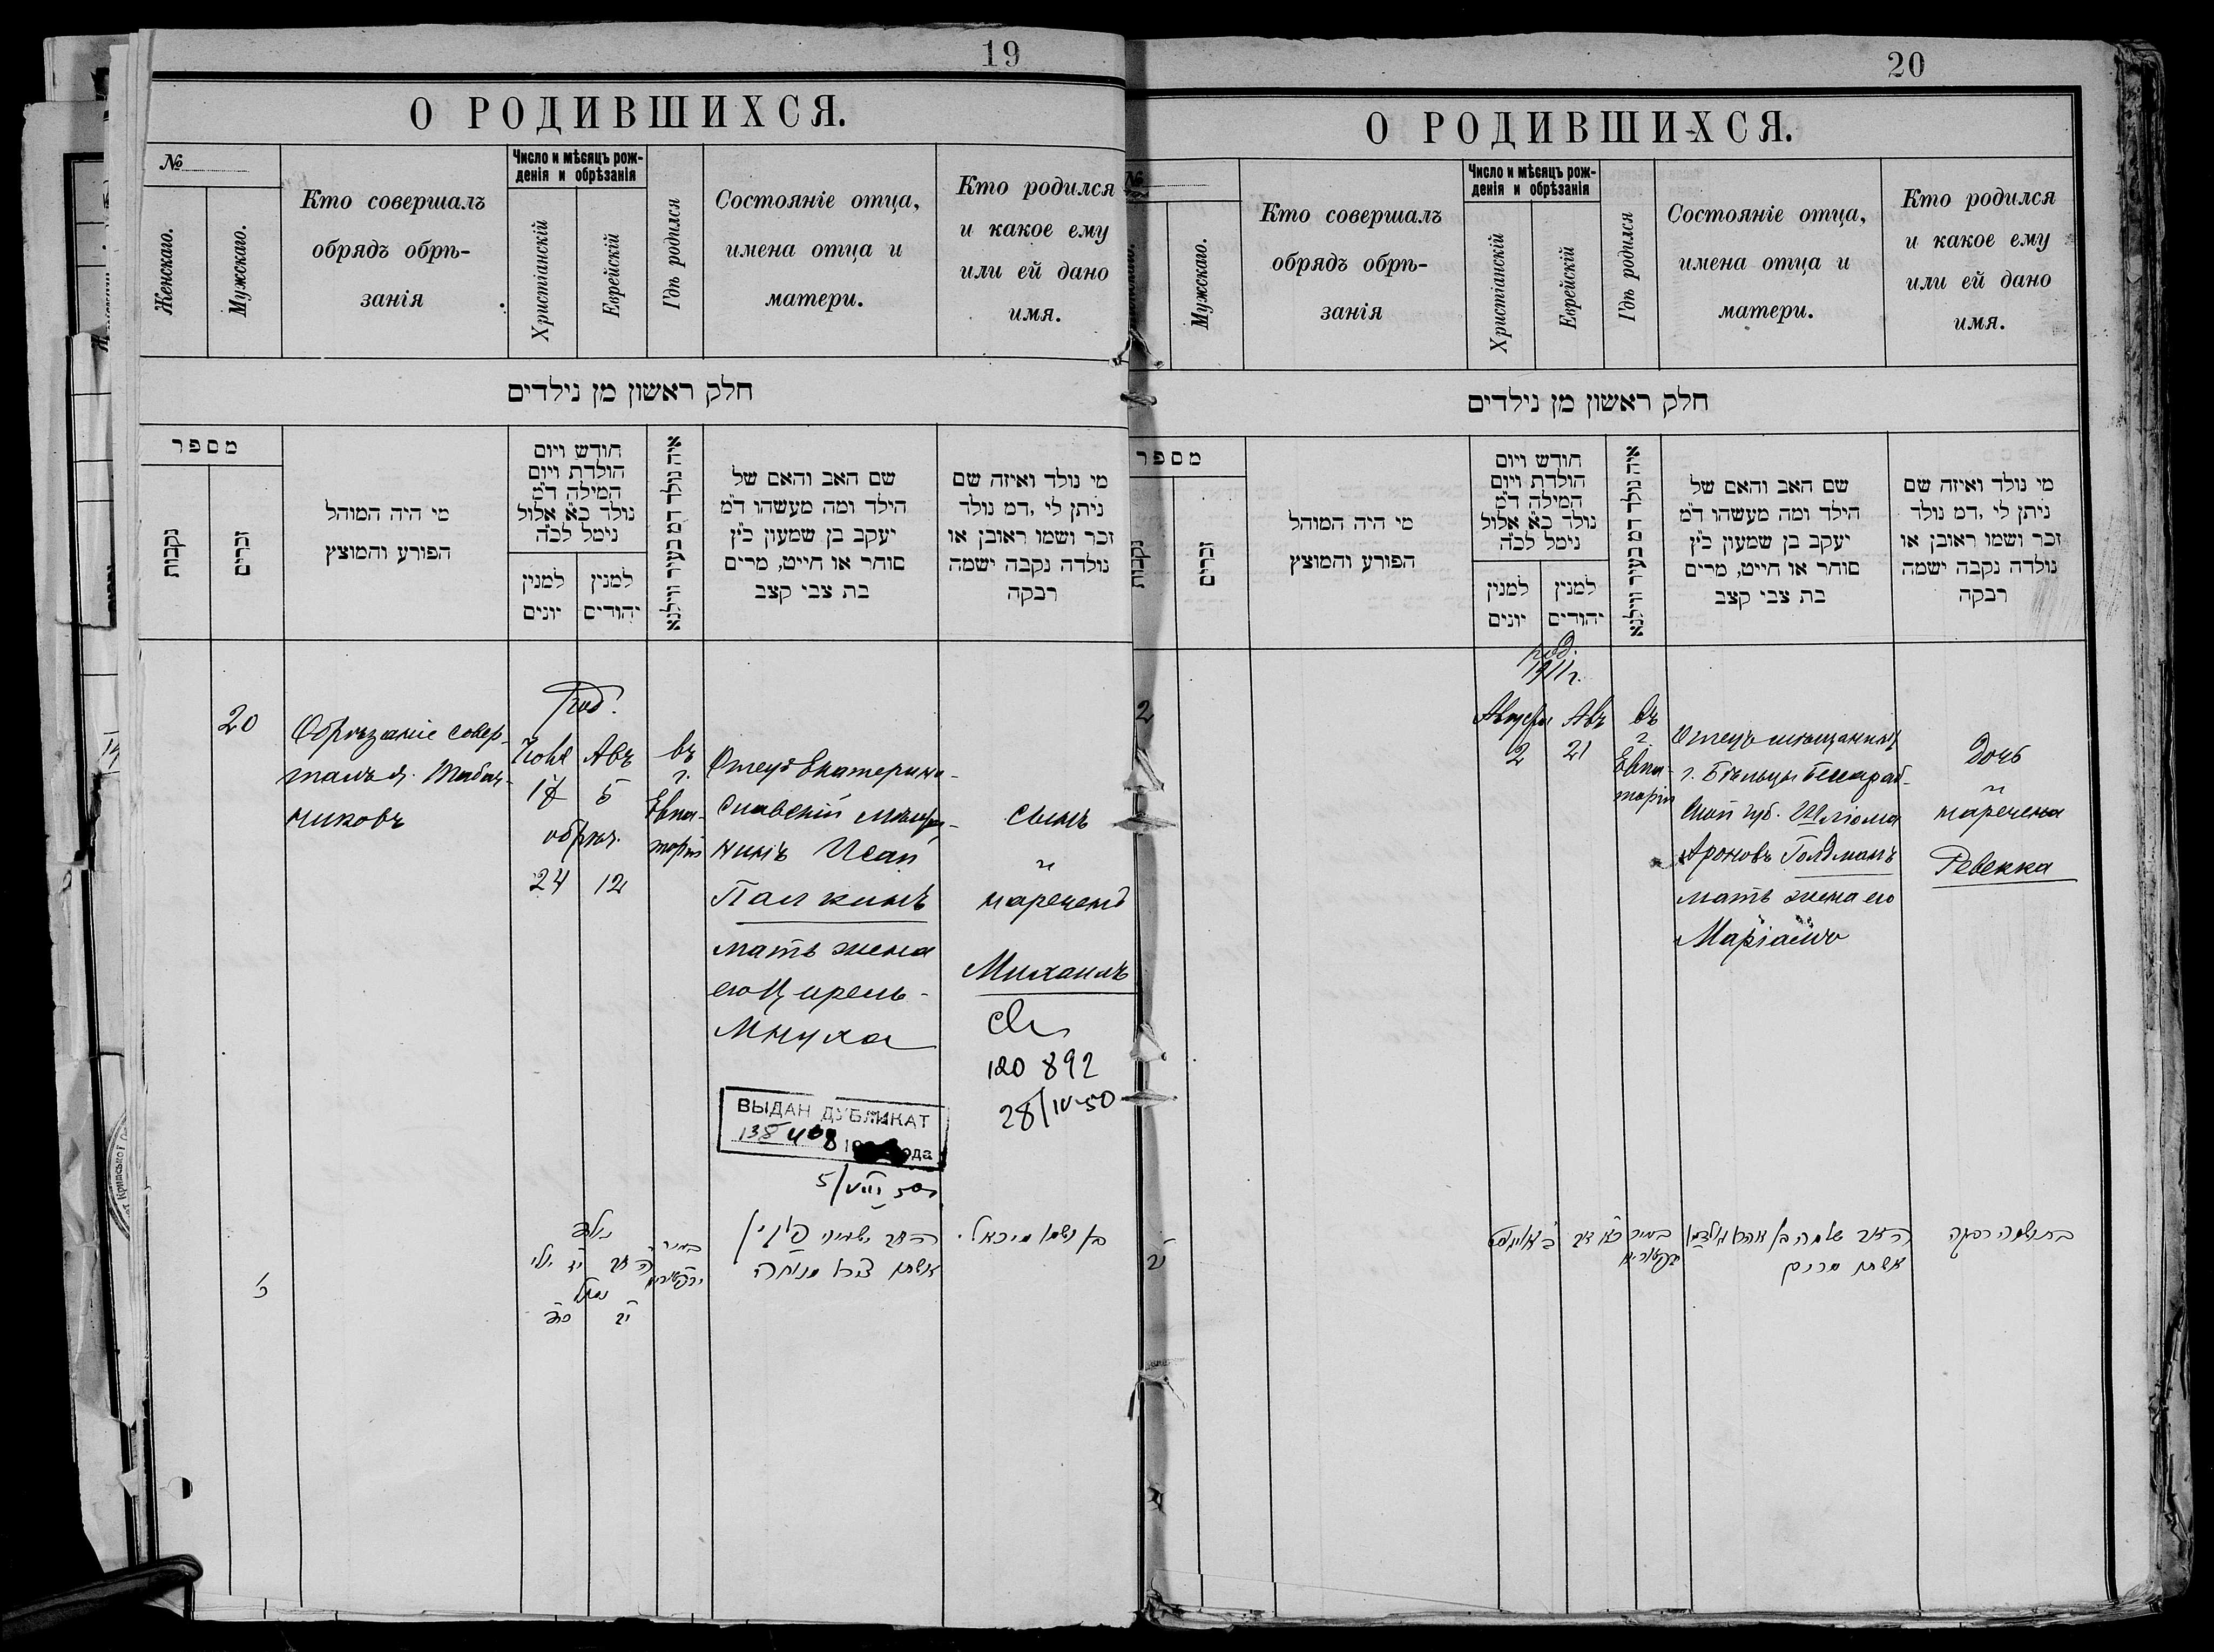 19
О РОДИВШИХСЯ.
№
Женскаго.
Мужскаго.
Кто совершалъ
обрядъ обрѣ-
занія
Число и мѣсяцъ рож-
денія и обрѣзанія
Христіанскій
Еврейскій
Гдѣ родился
Состояніе отца,
имена отца и
матери.
Кто родился
и какое ему
или ей дано
имя.
חלק ראשון מן נילדים
מספר
נקבות
זכרים
מי היה המוהל
הפורע והמוצץ
חודש ויום
הולדת ויום
המילה ד״מ
נולד כ״א אלול
נימל לכ״ה
למנין
יונים
למנין
יהודים
איה נולד דמ בעיר ווילנא
שם האב והאם של
הילד ומה מעשהו ד״מ
יעקב בן שמעון כ״ץ
סוחר או חייט, מרים
בת צבי קצב
מי נולד ואיזה שם
ניתן לי ,דמ נולד
זכר ושמו ראובן או
נולדה נקבה ישמה
רבקה
20
Обрѣзаніе совер-
шалъ Я. Табач-
никовъ
род.
Авъ
5
обрѣз.
24 12
въ
г.
Евпа-
торіи
Отецъ Екатерино-
славскій мѣща-
нинъ Исай
Палкинъ
мать жена
его Цирель-
Мнуха
сынъ
нареченъ
Михаилъ
120 892
28/IV-50
ВЫДАН ДУБЛИКАТ
5/VIII 50
נולד
נימול
אשתו צירל מנוחה
בן ושמו מיכאל
20
О РОДИВШИХСЯ.
№
Мужскаго.
Кто совершалъ
обрядъ обрѣ-
занія
Число и мѣсяцъ рож-
денія и обрѣзанія
Христіанскій
Еврейскій
Гдѣ родился
Состояніе отца,
имена отца и
матери.
Кто родился
и какое ему
или ей дано
имя.
חלק ראשון מן נילדים
מספר
נקבות
זכרים
מי היה המוהל
הפורע והמוצץ
חודש ויום
הולדת ויום
המילה ד״מ
נולד כ״א אלול
נימל לכ״ה
למנין
יונים
למנין
יהודים
איה נולד דמ בעיר ווילנא
שם האב והאם של
הילד ומה מעשהו ד״מ
יעקב בן שמעון כ״ץ
סוחר או חייט, מרים
בת צבי קצב
מי נולד ואיזה שם
ניתן לי ,דמ נולד
זכר ושמו ראובן או
נולדה נקבה ישמה
רבקה
2
род.
1911 г.
Августа
2
Авъ
21
въ
г.
Евпа-
торіи
Отецъ мѣщанинъ
г. Бѣльцы Бессараб-
ской губ. Шлиома
Ароновъ Голдманъ
мать жена его
Маріамъ
Дочь
наречена
Ревекка
שלמה בן אהרן גאלדמאן
אשתו מרים
בת ושמה רבקה